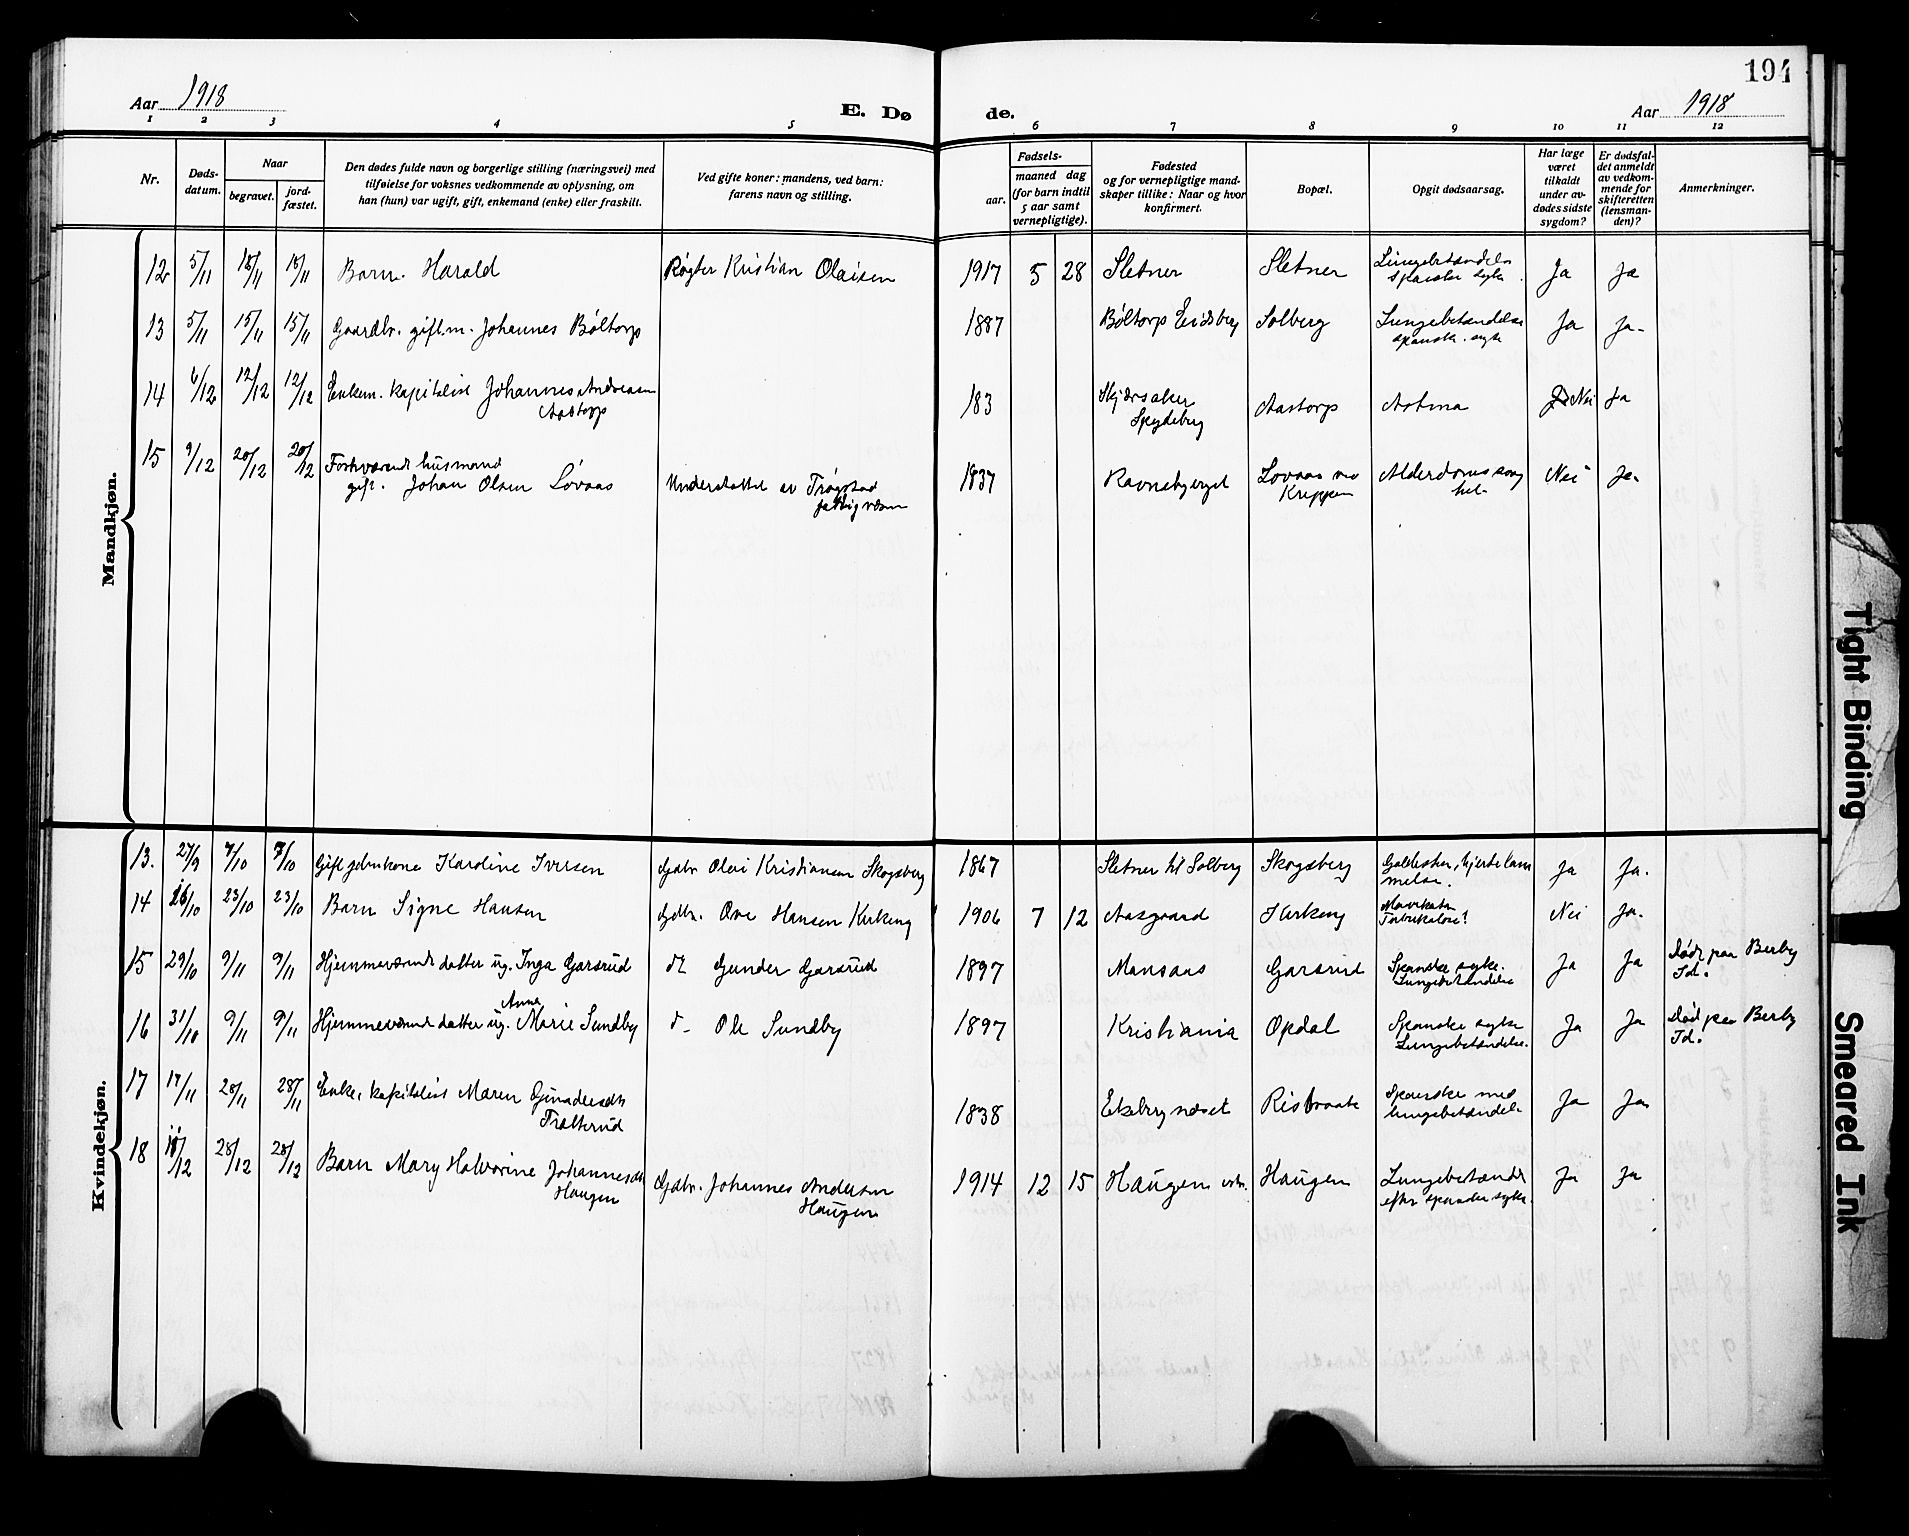 194
Aar 1918
E. Dø
de.
Aar 1918
1 2 3 4 5 6 7 8 9 10 11 12
Nr.
Døds-
datum.
Naar
begravet.
jord-
fæstet.
Den dødes fulde navn og borgerlige stilling (næringsvei) med
tilføielse for voksnes vedkommende av oplysning, om
han (hun) var ugift, gift, enkemand (enke) eller fraskilt.
Ved gifte koner: mandens, ved barn:
farens navn og stilling.
Fødsels-
aar.
maaned dag
(for barn indtil
5 aar samt
vernepligtige).
Fødested
og for vernepligtige mand-
skaper tillike: Naar og hvor
konfirmert.
Bopæl.
Opgit dødsaarsag.
Har læge
været
tilkaldt
under av-
dødes sidste
sygdom?
Er dødsfal-
det anmeldt
av vedkom-
mende for
skifteretten
(lensman-
den)?
Anmerkninger.
Mandkjøn.
12 5/11 15/11 15/11 Barn. Harald Røgter Kristian Olaisen 1917 5 28 Sletner Sletner Lungebetændelse
spanske syke Ja Ja
13 5/11 15/11 15/11 Gaardbr. gift. m. Johannes Bøltorp 1887 Bøltorp Eidsberg Solberg Lungebetændelse
spanske syke Ja Ja
14 6/12 12/12 12/12 Enkem. kapitalist Johannes Andreasen
Aastorp 183 Skjørsaker
Spydeberg Aastorp Astma Nei Ja
15 9/12 20/12 20/12 Forhværende husmand
gift. Johan Olsen Løvaas Understøttet av Trøgstad
fattigvæsen 1837 Ravnsbjerget Løvaas
Kreppen Alderdomssvag
het Nei Ja
Kvindekjøn.
13. 27/9 7/10 7/10 Gift gdmkone Karoline Iversen Gdbr. Olai Kristiansen Skogsberg 1867 Sletner til Solberg Skogsberg Galdesten, hjertelam
melse. Ja Ja.
14 16/10 23/10 23/10 Barn Signe Hansen Gdbr. Ove Hansen Kirkeng 1906 7 12 Aasgaard Kirkeng Nei Ja.
15 29/10 9/11 9/11 Hjemmeværende datter ug. Inga Garsrud Gunder Garsrud 1897 Mansaas Garsrud Spanske syke.
Lungebetændelse Ja Ja Død paa Berby
Id.
16 31/10 9/11 9/11 Hjemmeværende datter ug. Anna Marie Sundby Ole Sundby 1897 Kristiania Opdal Spanske syke
Lungebetændelse. Ja Ja Død paa Berby
Id.
17 17/11 28/11 28/11 Enke, kapitalist Maren Gunadersdtr
Trætterud 1838 Ekebergnæset Risbraate Spanske med
lungebetændelse Ja Ja
18 11/12 28/12 28/12 Barn Mary Halvorine Johannesdtr
Haugen Gdbr. Johannes Andersen
Haugen 1914 12 15 Haugen Haugen Lungebetændelse
efter spanske syke. Ja Ja
Tight Binding
Smeared Ink